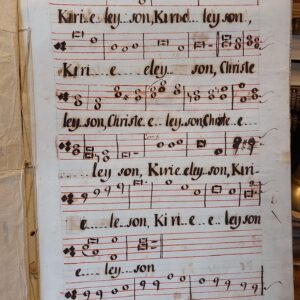 Kiri..e ley..son, Kirie...ley son,
Kiri....e.......eley.... son, Christe
ley..son, Christe.e...ley son, Christe...e...
ley son, Kirie eley..son, Kiri-
e.....le-son, Ki ri..e..e...leyson
e.....ley...son